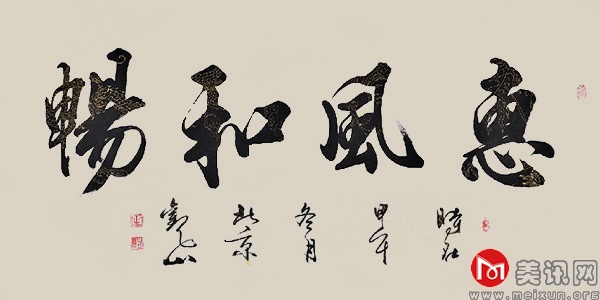 惠風和暢
時在甲午冬月北京
美讯网
www.meixun.org